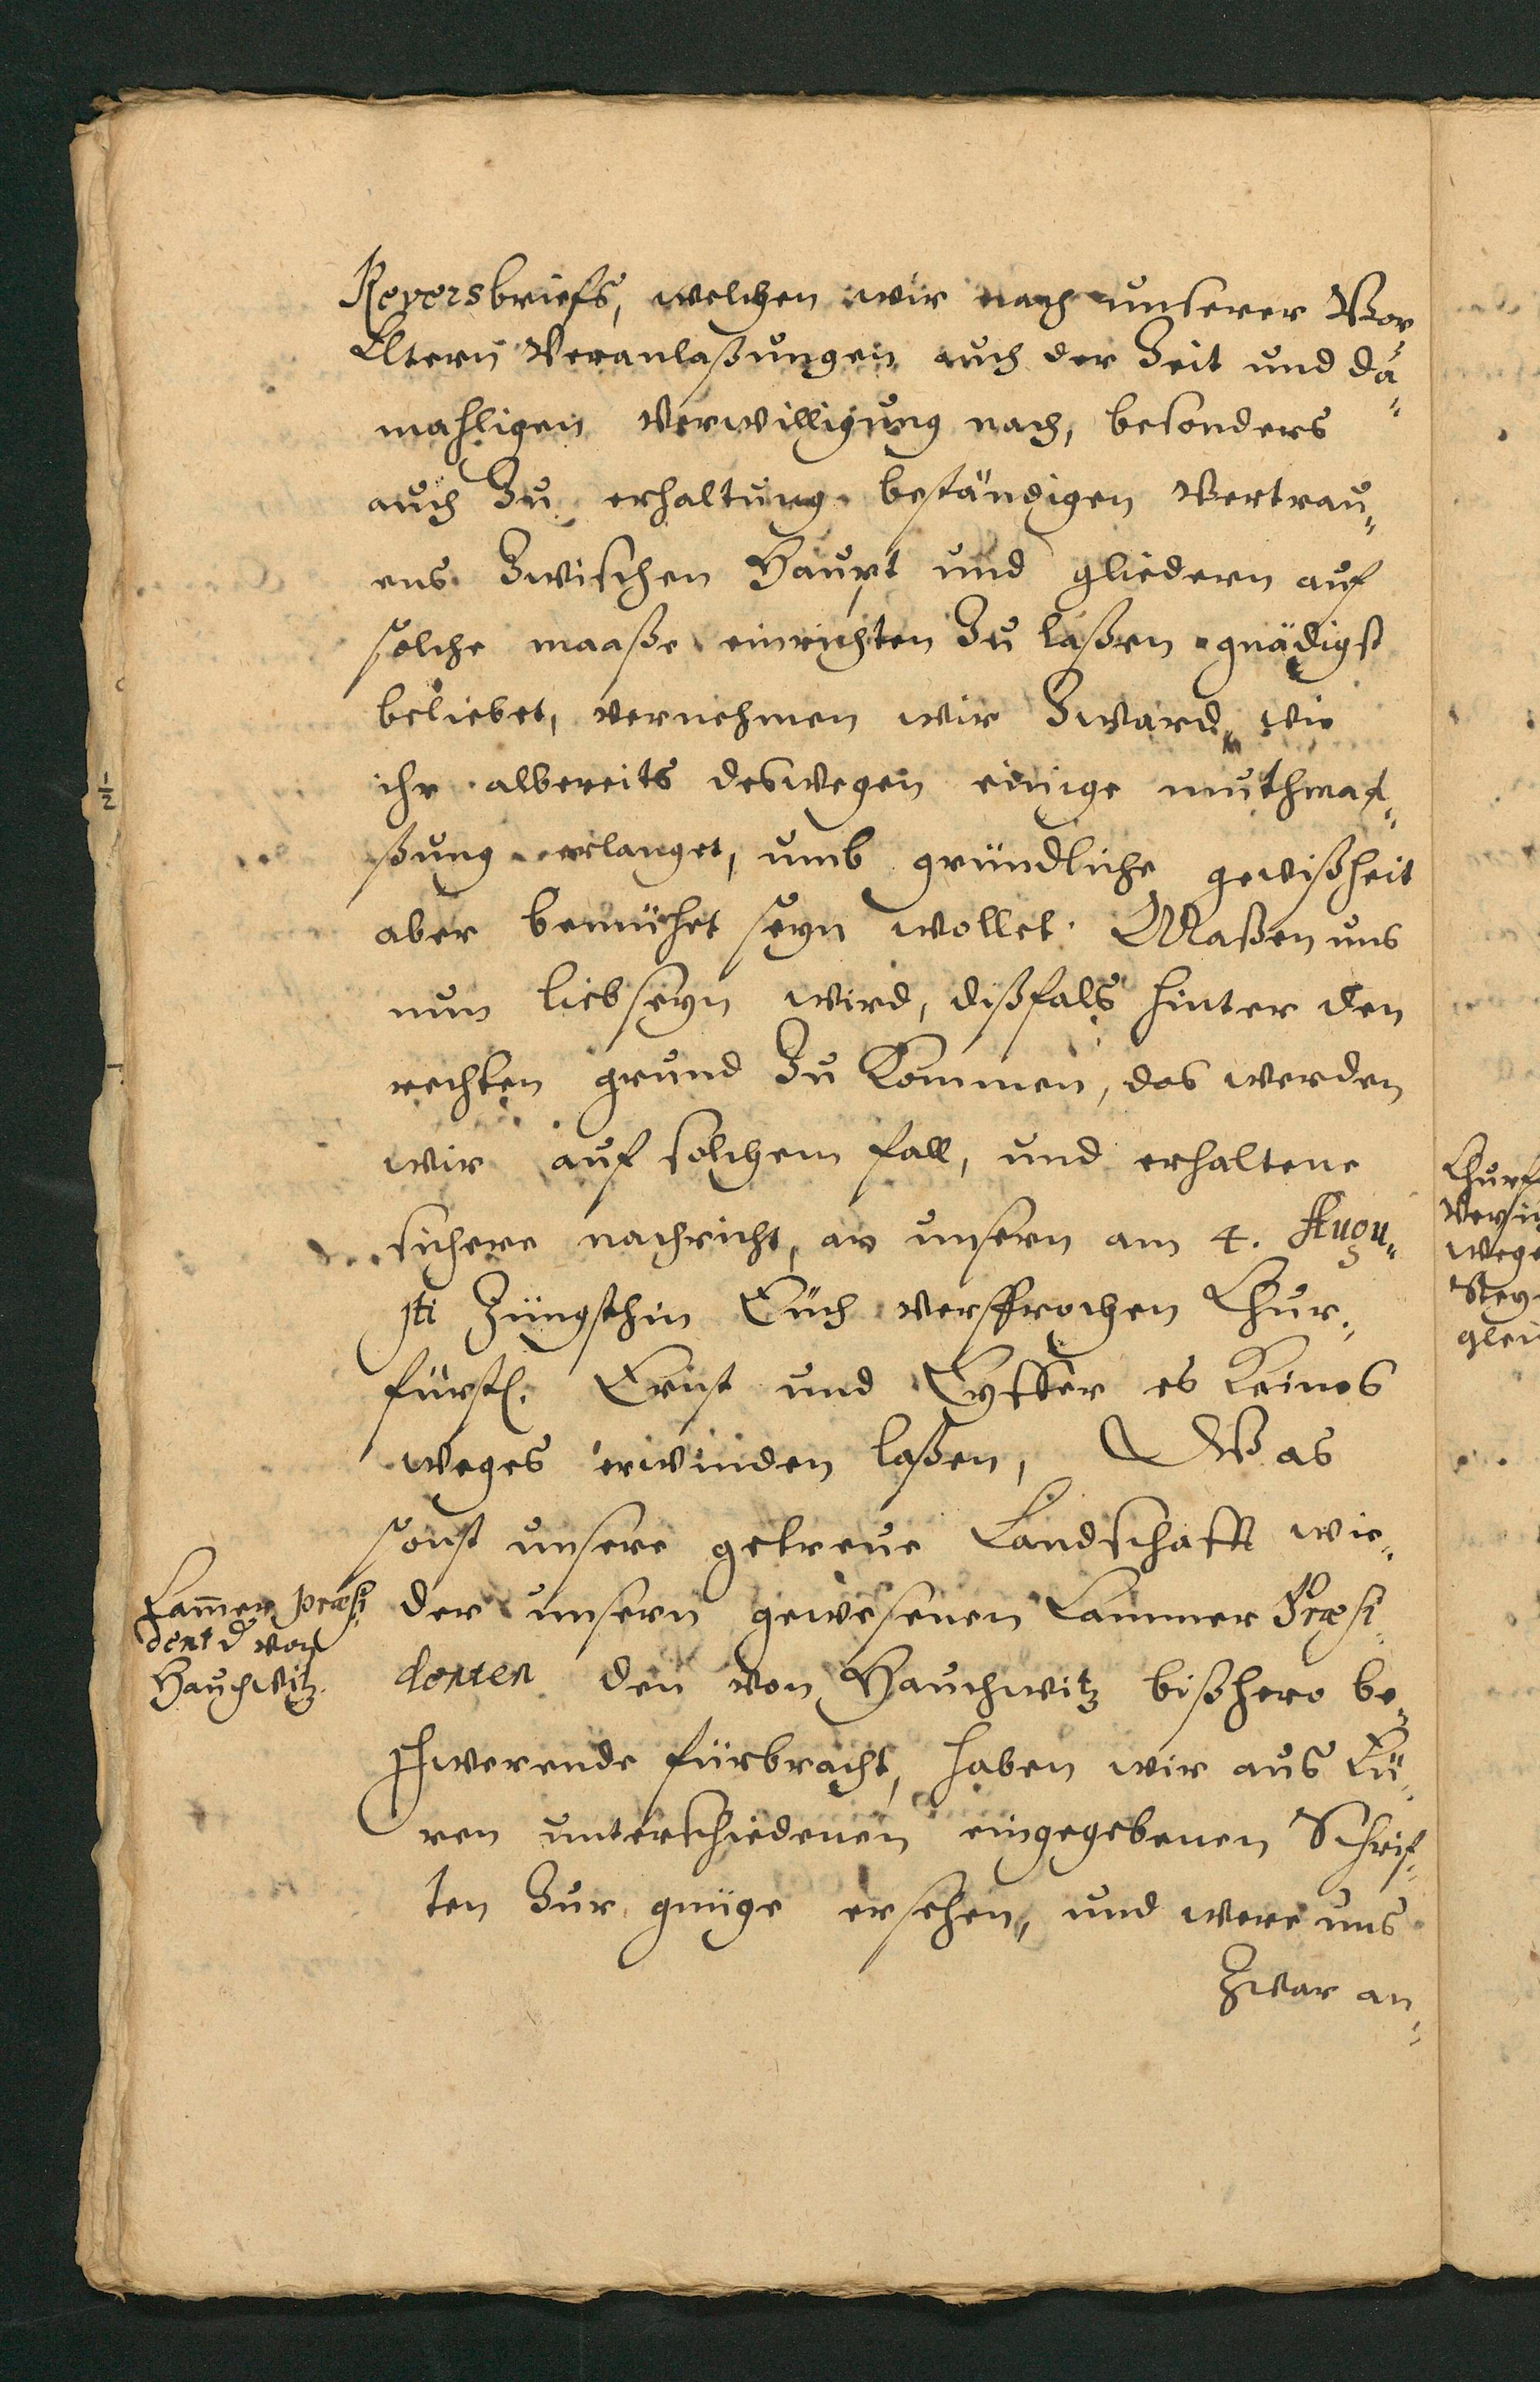 Reversbriefs, welchen wir nach unserer Vor
Eltern Veranlaßungen auch der Zeit und da-
mahligen Verwilligung nach, besonders
auch Zu erhaltung beständigen Vertrau-
ens Zwischen Haupt und gliedern auf
solche maaße einrichten Zu laßen gnädigst
beliebet, vernehmen wir Zward, wie
ihr albereits deswegen einige muthmas-
ßung erlanget, umb gründliche gewißheit
aber bemühet seyn wollet. Maßen uns
nun lieb seyn wird, dißfals hinter den
rechten grund Zu Kommen, das werden
wir auf solchem fall, und erhaltene
sichere nachricht, an unsern am 4. Augu-
sti Jüngsthin Euch versprochen Chur-
fürstl. Ernst und Eyffer es Keines
weges erwinden laßen, Was
sonst unsere getreue Landschafft wie-
der unsern gewesenen Cammer Præsi-
denten den von Hauchwitz bißhero be-
schwerende fürbracht, haben wir aus Eü-
ren unterschiedenen eingegebenen Schrif-
ten Zur gnüge ersehen, und were uns
Zwar an-
Cam̄er præsi-
dent d von
Hauchwitz.
Churf
wege
glei
1/2